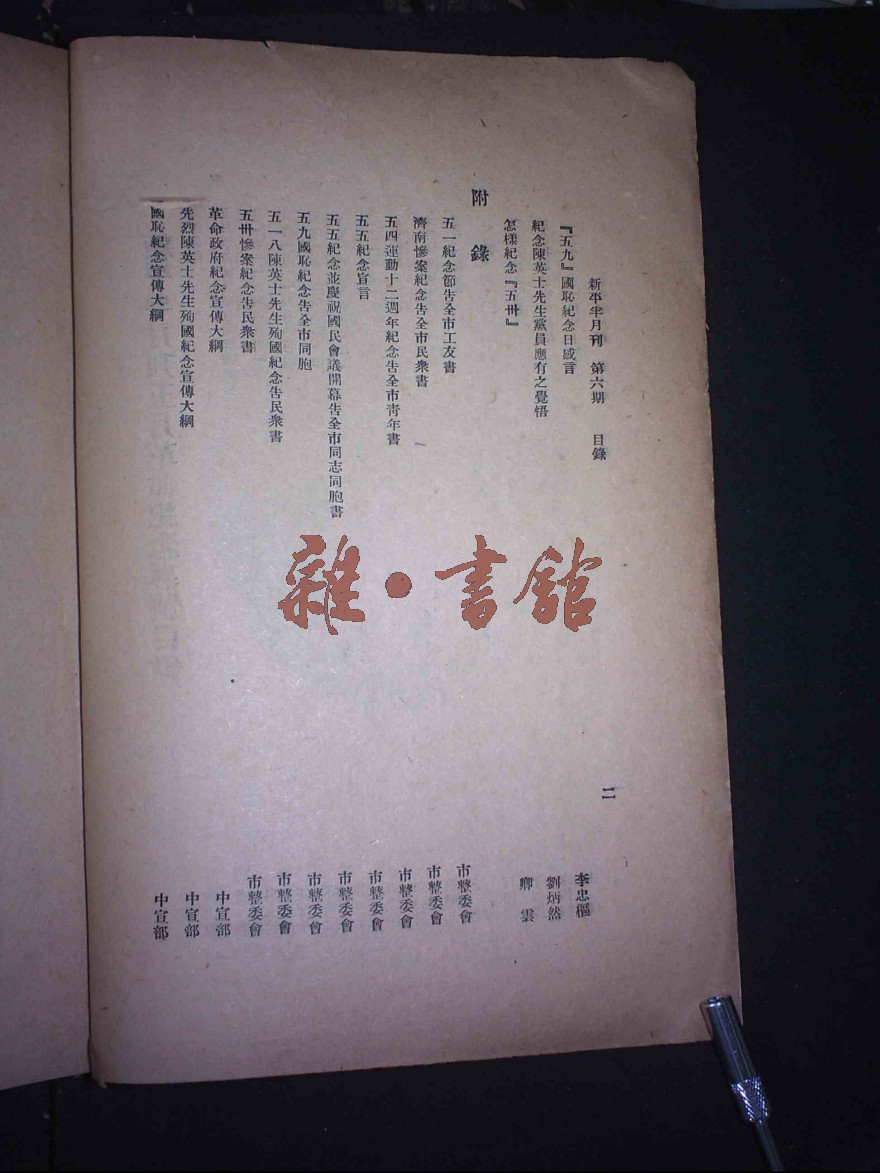 新平半月刊 第六期 目錄 二
『五九』國恥紀念日感言 李忠樞
紀念陳英士先生黨員應有之覺悟 劉炳然
怎樣紀念『五卅』 卿雲
附錄
五一紀念節告全市工友書 市整委會
濟南慘案紀念告全市民衆書 市整委會
五四運動十二週年紀念告全市靑年書 市整委會
五五紀念宣言 市整委會
五五紀念並慶祝國民會議開幕告全市同志同胞書 市整委會
五九國恥紀念告全市同胞 市整委會
五一八陳英士先生殉國紀念告民衆書 市整委會
五卅慘案紀念告民衆書 市整委會
革命政府紀念宣傳大綱 中宣部
先烈陳英士先生殉國紀念宣傳大綱 中宣部
國恥紀念宣傳大綱 中宣部
雜·書館